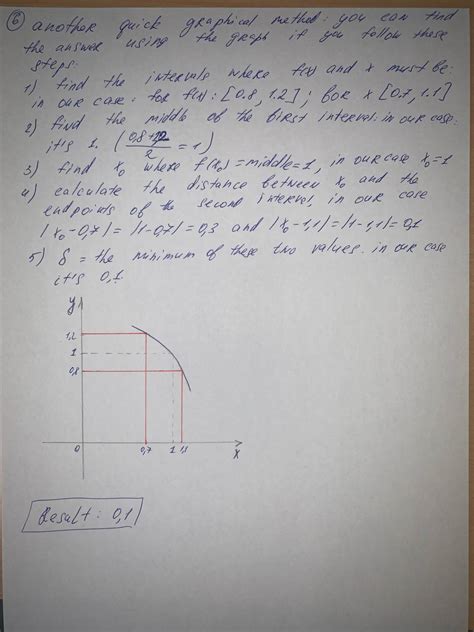 6 another quick graphical method: you can find
the answer using the graph if you follow these
steps:
1) find the intervals where f(x) and x must be:
in our case: for f(x): [0.8, 1.2]; for x [0.7, 1.1]
2) find the middle of the first interval. in our case:
it's 1. (0,8+1,2/2 = 1)
3) find x₀ where f(x₀)=middle=1, in our case x₀=1
4) calculate the distance between x₀ and the
endpoints of the second interval, in our case
|x₀-0,7|=|1-0,7|=0,3 and |x₀-1,1|=|1-1,1|=0,1
5) δ = the minimum of these two values. in our case
it's 0,1.
y
1,2
1
0,8
0 0,7 1 1,1 x
Result: 0,1